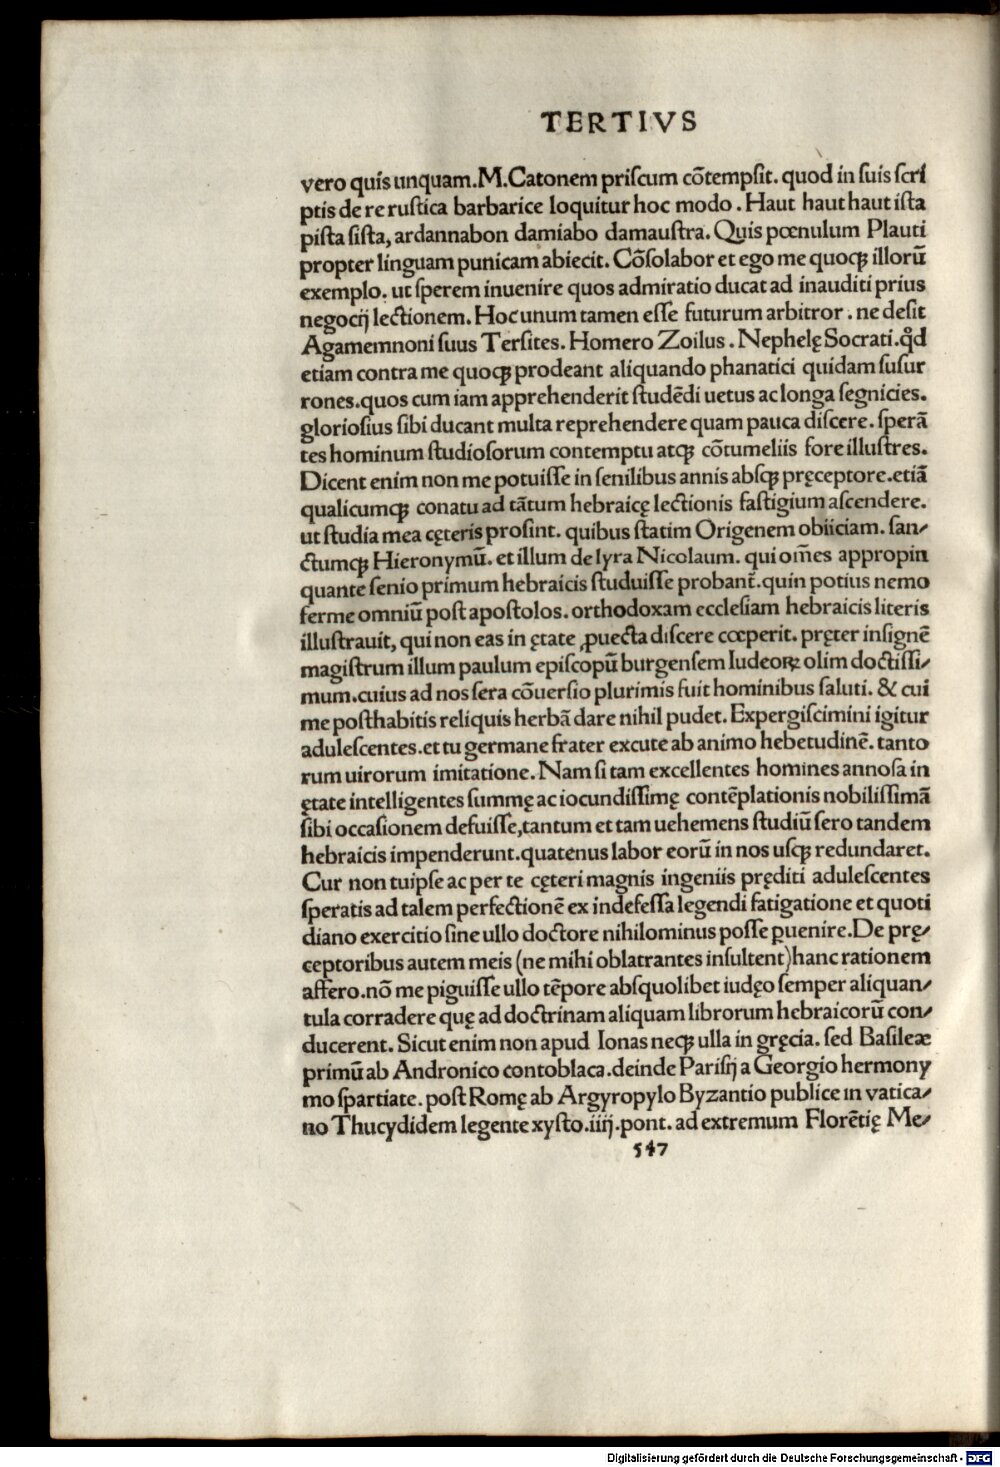 TERTIVS
vero quis unquam.M.Catonem priſcum cõtempſit. quod in ſuis ſcri
ptis de re ruſtica barbarice loquitur hoc modo . Haut haut haut iſta
piſta ſiſta, ardannabon damiabo damauſtra. Quis pœnulum Plauti
propter linguam punicam abiecit. Cõſolabor et ego me quoqꝫ illorũ
exemplo. ut ſperem inuenire quos admiratio ducat ad inauditi prius
negocij lectionem. Hoc unum tamen eſſe futurum arbitror . ne deſit
Agamemnoni ſuus Terſites. Homero Zoilus . Nephelę Socrati.qd̾
etiam contra me quoqꝫ prodeant aliquando phanatici quidam ſuſur
rones.quos cum iam apprehenderit ſtudẽdi uetus ac longa ſegnicies.
glorioſius ſibi ducant multa reprehendere quam pauca diſcere. ſperã
tes hominum ſtudioſorum contemptu atqꝫ cõtumeliis fore illuſtres.
Dicent enim non me potuiſſe in ſenilibus annis abſqꝫ pręceptore.etiã
qualicumqꝫ conatu ad tãtum hebraicę lectionis faſtigium aſcendere.
ut ſtudia mea cęteris proſint. quibus ſtatim Origenem obiiciam. ſan⸗
ctumqꝫ Hieronymũ. et illum de lyra Nicolaum. qui om̃es appropin
quante ſenio primum hebraicis ſtuduiſſe probant̃.quin potius nemo
ferme omniũ poſt apoſtolos. orthodoxam eccleſiam hebraicis literis
illuſtrauit, qui non eas in ętate ꝓuecta diſcere cœperit. pręter inſignẽ
magiſtrum illum paulum epiſcopũ burgenſem Iudeoꝝ olim doctiſſi⸗
mum.cuius ad nos ſera cõuerſio plurimis fuit hominibus ſaluti. & cui
me poſthabitis reliquis herbã dare nihil pudet. Expergiſcimini igitur
aduleſcentes.et tu germane frater excute ab animo hebetudinẽ. tanto
rum uirorum imitatione. Nam ſi tam excellentes homines annoſa in
ętate intelligentes ſummę ac iocundiſſimę contẽplationis nobiliſſimã
ſibi occaſionem defuiſſe,tantum et tam uehemens ſtudiũ ſero tandem
hebraicis impenderunt.quatenus labor eorũ in nos uſqꝫ redundaret.
Cur non tuipſe ac per te cęteri magnis ingeniis pręditi aduleſcentes
ſperatis ad talem perfectionẽ ex indefeſſa legendi fatigatione et quoti
diano exercitio ſine ullo doctore nihilominus poſſe ꝑuenire.De prę⸗
ceptoribus autem meis (ne mihi oblatrantes inſultent)hanc rationem
affero.nõ me piguiſſe ullo tẽpore abſquolibet iudęo ſemper aliquan⸗
tula corradere quę ad doctrinam aliquam librorum hebraicorũ con⸗
ducerent. Sicut enim non apud Ionas neqꝫ ulla in gręcia. ſed Baſileæ
primũ ab Andronico contoblaca.deinde Pariſij a Georgio hermony
mo ſpartiate. poſt Romę ab Argyropylo Byzantio publice in vatica⸗
no Thucydidem legente xyſto.iiij.pont. ad extremum Florẽtię Me⸗
547
Digitalisierung gefördert durch die Deutsche Forschungsgemeinschaft - DFG